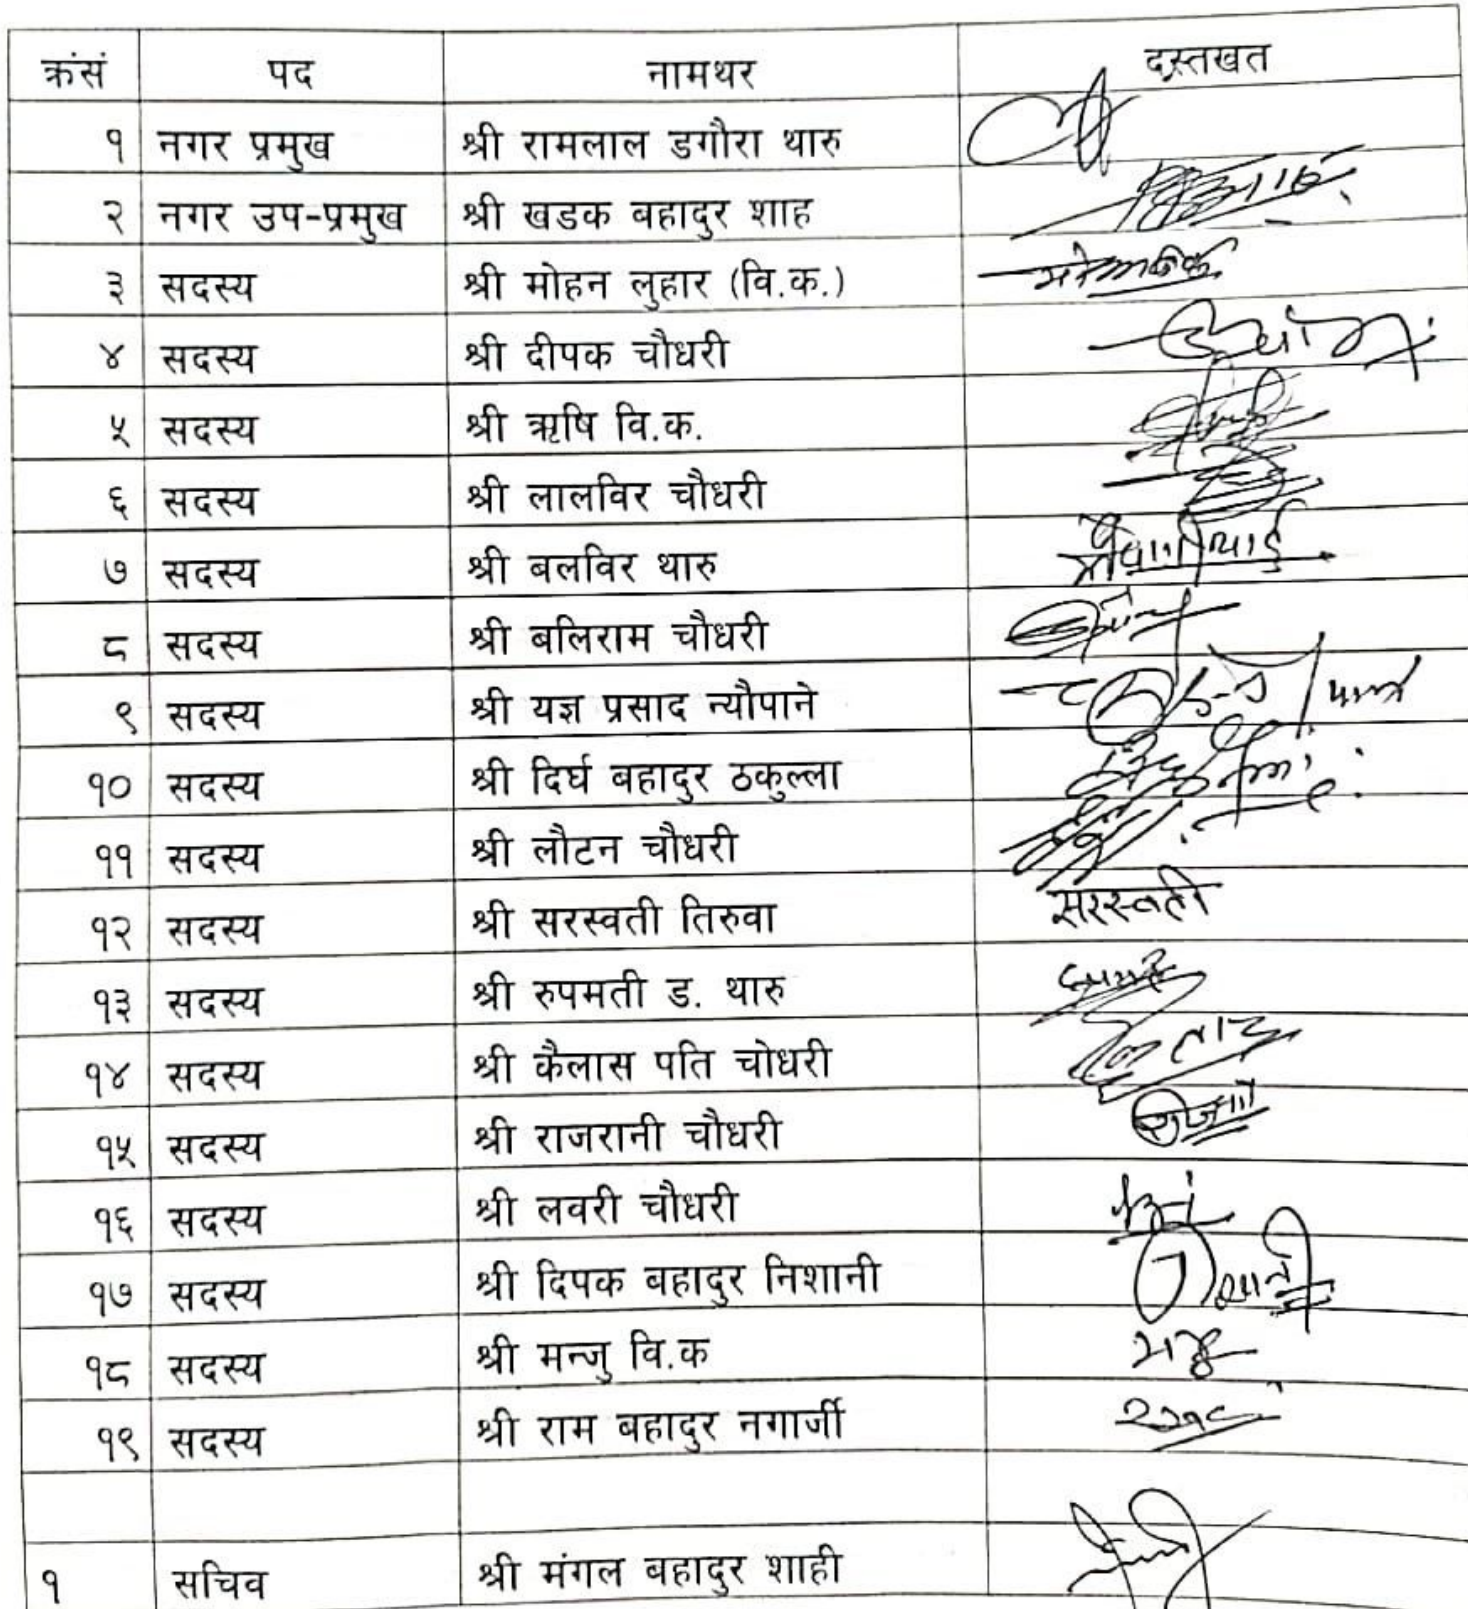 क्रंसं पद नामथर दस्तखत
१ नगर प्रमुख श्री रामलाल डगौरा थारु
२ नगर उप-प्रमुख श्री खडक बहादुर शाह
३ सदस्य श्री मोहन लुहार (वि.क.)
४ सदस्य श्री दीपक चौधरी
५ सदस्य श्री ऋषि वि.क.
६ सदस्य श्री लालविर चौधरी
७ सदस्य श्री बलविर थारु
८ सदस्य श्री बलिराम चौधरी
९ सदस्य श्री यज्ञ प्रसाद न्यौपाने
१० सदस्य श्री दिर्घ बहादुर ठकुल्ला
११ सदस्य श्री लौटन चौधरी
१२ सदस्य श्री सरस्वती तिरुवा सरस्वती
१३ सदस्य श्री रुपमती ड. थारु
१४ सदस्य श्री कैलास पति चोधरी
१५ सदस्य श्री राजरानी चौधरी
१६ सदस्य श्री लवरी चौधरी
१७ सदस्य श्री दिपक बहादुर निशानी
१८ सदस्य श्री मन्जु वि.क
१९ सदस्य श्री राम बहादुर नगार्जी
१ सचिव श्री मंगल बहादुर शाही